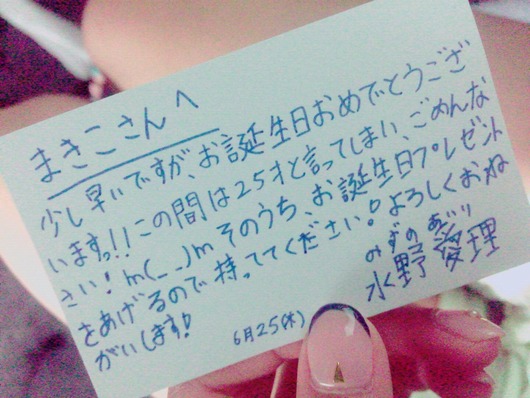 まきこさんへ
少し早いですが、お誕生日おめでとうござ
いますっ!!この間は25才と言ってしまい、ごめんな
さい!m(_ _)mそのうち、お誕生日プレゼント
をあげるので持っててください!よろしくおね
がいします!
みずの あいり
水野 愛理
6月25(木)